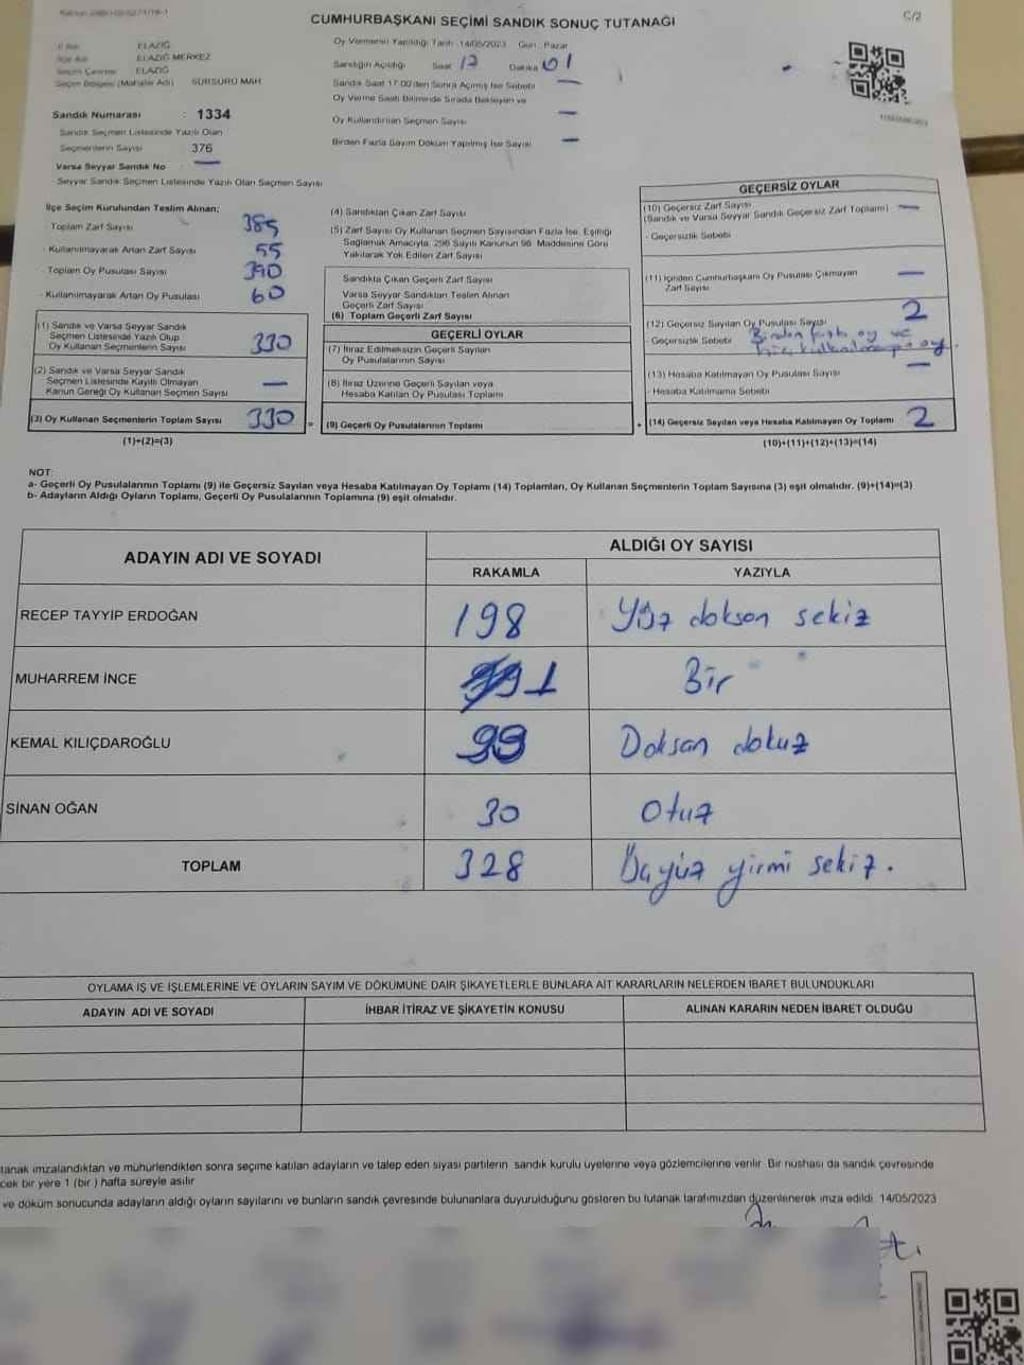 CUMHURBAŞKANI SEÇİMİ SANDIK SONUÇ TUTANAĞI
C/2
İl Adı : ELAZIĞ
İlçe Adı : ELAZIĞ MERKEZ
Seçim Çevresi : ELAZIĞ
Seçim Bölgesi (Mahalle Adı) : SÜRSÜRÜ MAH.
Sandık Numarası : 1334
Sandık Seçmen Listesinde Yazılı Olan
Seçmenlerin Sayısı : 376
Varsa Seyyar Sandık No : —
Seyyar Sandık Seçmen Listesinde Yazılı Olan Seçmen Sayısı
Oy Vermenin Yapıldığı Tarih : 14/05/2023 Gün : Pazar
Sandığın Açıldığı Saat 17 Dakika 01
Sandık Saat 17:00'den Sonra Açılmış İse Sebebi —
Oy Verme Saati Bitiminde Sırada Bekleyen ve
Oy Kullandırılan Seçmen Sayısı —
Birden Fazla Sayım Döküm Yapılmış İse Sayısı —
İlçe Seçim Kurulundan Teslim Alınan;
- Toplam Zarf Sayısı 385
- Kullanılmayarak Artan Zarf Sayısı 55
- Toplam Oy Pusulası Sayısı 390
- Kullanılmayarak Artan Oy Pusulası 60
(1) Sandık ve Varsa Seyyar Sandık
Seçmen Listesinde Yazılı Olup
Oy Kullanan Seçmenlerin Sayısı 330
(2) Sandık ve Varsa Seyyar Sandık
Seçmen Listesinde Kayıtlı Olmayan
Kanun Gereği Oy Kullanan Seçmen Sayısı —
(3) Oy Kullanan Seçmenlerin Toplam Sayısı 330
(1)+(2)=(3)
(4) Sandıktan Çıkan Zarf Sayısı
(5) Zarf Sayısı Oy Kullanan Seçmen Sayısından Fazla İse, Eşitliği
Sağlamak Amacıyla, 298 Sayılı Kanunun 98. Maddesine Göre
Yakılarak Yok Edilen Zarf Sayısı
Sandıkta Çıkan Geçerli Zarf Sayısı
Varsa Seyyar Sandıktan Teslim Alınan
Geçerli Zarf Sayısı
(6) Toplam Geçerli Zarf Sayısı
GEÇERLİ OYLAR
(7) İtiraz Edilmeksizin Geçerli Sayılan
Oy Pusulalarının Sayısı
(8) İtiraz Üzerine Geçerli Sayılan veya
Hesaba Katılan Oy Pusulası Toplamı
(9) Geçerli Oy Pusulalarının Toplamı
GEÇERSİZ OYLAR
(10) Geçersiz Zarf Sayısı —
(Sandık ve Varsa Seyyar Sandık Geçersiz Zarf Toplamı)
- Geçersizlik Sebebi
(11) İçinden Cumhurbaşkanı Oy Pusulası Çıkmayan —
Zarf Sayısı
(12) Geçersiz Sayılan Oy Pusulası Sayısı 2
- Geçersizlik Sebebi Birden fazla oy ve
(13) Hesaba Katılmayan Oy Pusulası Sayısı —
- Hesaba Katılmama Sebebi
(14) Geçersiz Sayılan veya Hesaba Katılmayan Oy Toplamı 2
(10)+(11)+(12)+(13)=(14)
NOT:
a- Geçerli Oy Pusulalarının Toplamı (9) ile Geçersiz Sayılan veya Hesaba Katılmayan Oy Toplamı (14) Toplamları, Oy Kullanan Seçmenlerin Toplam Sayısına (3) eşit olmalıdır. (9)+(14)=(3)
b- Adayların Aldığı Oyların Toplamı, Geçerli Oy Pusulalarının Toplamına (9) eşit olmalıdır.
ADAYIN ADI VE SOYADI
ALDIĞI OY SAYISI
RAKAMLA YAZIYLA
RECEP TAYYİP ERDOĞAN 198 Yüz doksan sekiz
MUHARREM İNCE 1 Bir
KEMAL KILIÇDAROĞLU 99 Doksan dokuz
SİNAN OĞAN 30 Otuz
TOPLAM 328 Üçyüz yirmi sekiz.
OYLAMA İŞ VE İŞLEMLERİNE VE OYLARIN SAYIM VE DÖKÜMÜNE DAİR ŞİKAYETLERLE BUNLARA AİT KARARLARIN NELERDEN İBARET BULUNDUKLARI
ADAYIN ADI VE SOYADI İHBAR İTİRAZ VE ŞİKAYETİN KONUSU ALINAN KARARIN NEDEN İBARET OLDUĞU
tanak imzalandıktan ve mühürlendikten sonra seçime katılan adayların ve talep eden siyasi partilerin sandık kurulu üyelerine veya gözlemcilerine verilir. Bir nüshası da sandık çevresinde
cek bir yere 1 (bir ) hafta süreyle asılır
ve döküm sonucunda adayların aldığı oyların sayılarını ve bunların sandık çevresinde bulunanlara duyurulduğunu gösteren bu tutanak tarafımızdan düzenlenerek imza edildi. 14/05/2023